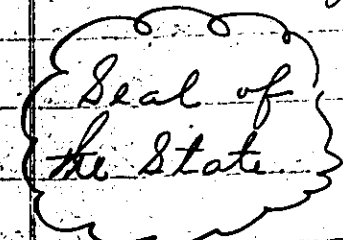 Seal of
the State